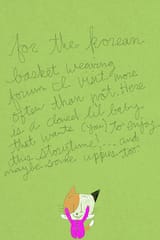 for the korean
basket weaving
forum I visit more
often than not. Here
is a clowd lil baby
that wants (you) to enjoy
this storytime)... and
maybe some uppies too.